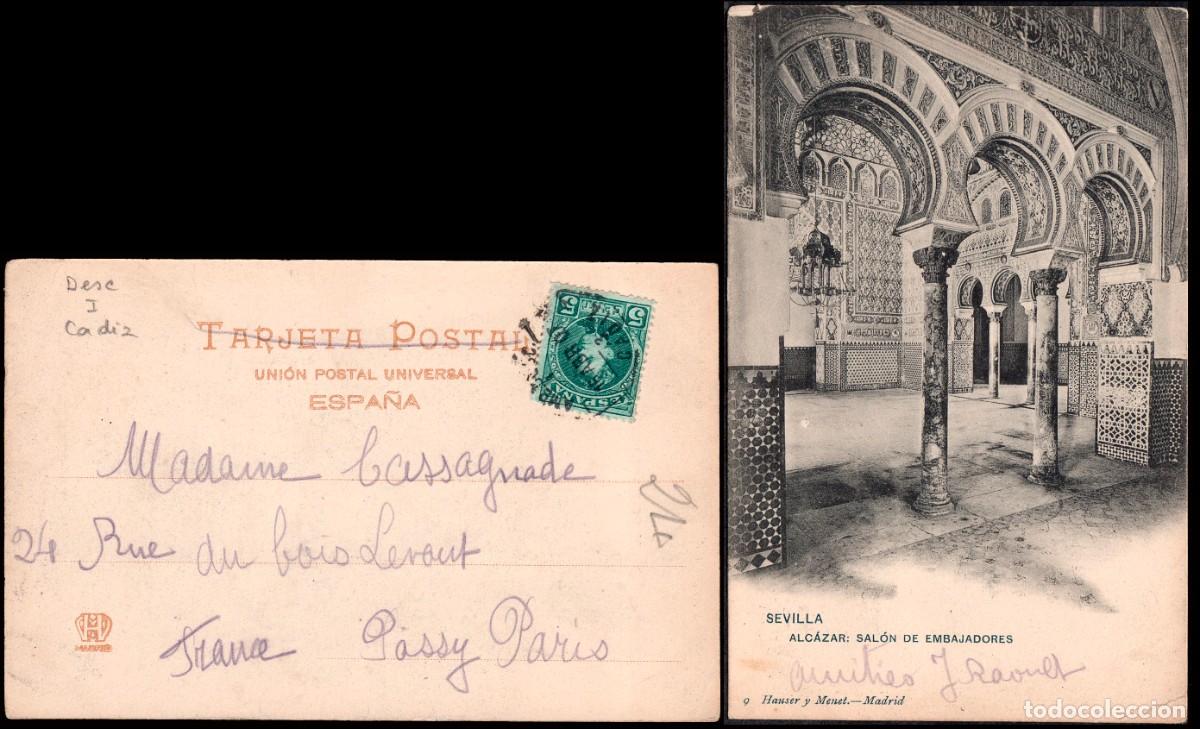 Desc
I
Cadiz
TARJETA POSTAL
UNIÓN POSTAL UNIVERSAL
ESPAÑA
5 5
Madame Cassagnade
24 Rue du bois Levant
France Passy Paris
MADRID
SEVILLA
ALCÁZAR: SALÓN DE EMBAJADORES
amitiés J Raoult
9 Hauser y Menet.—Madrid
todocoleccion